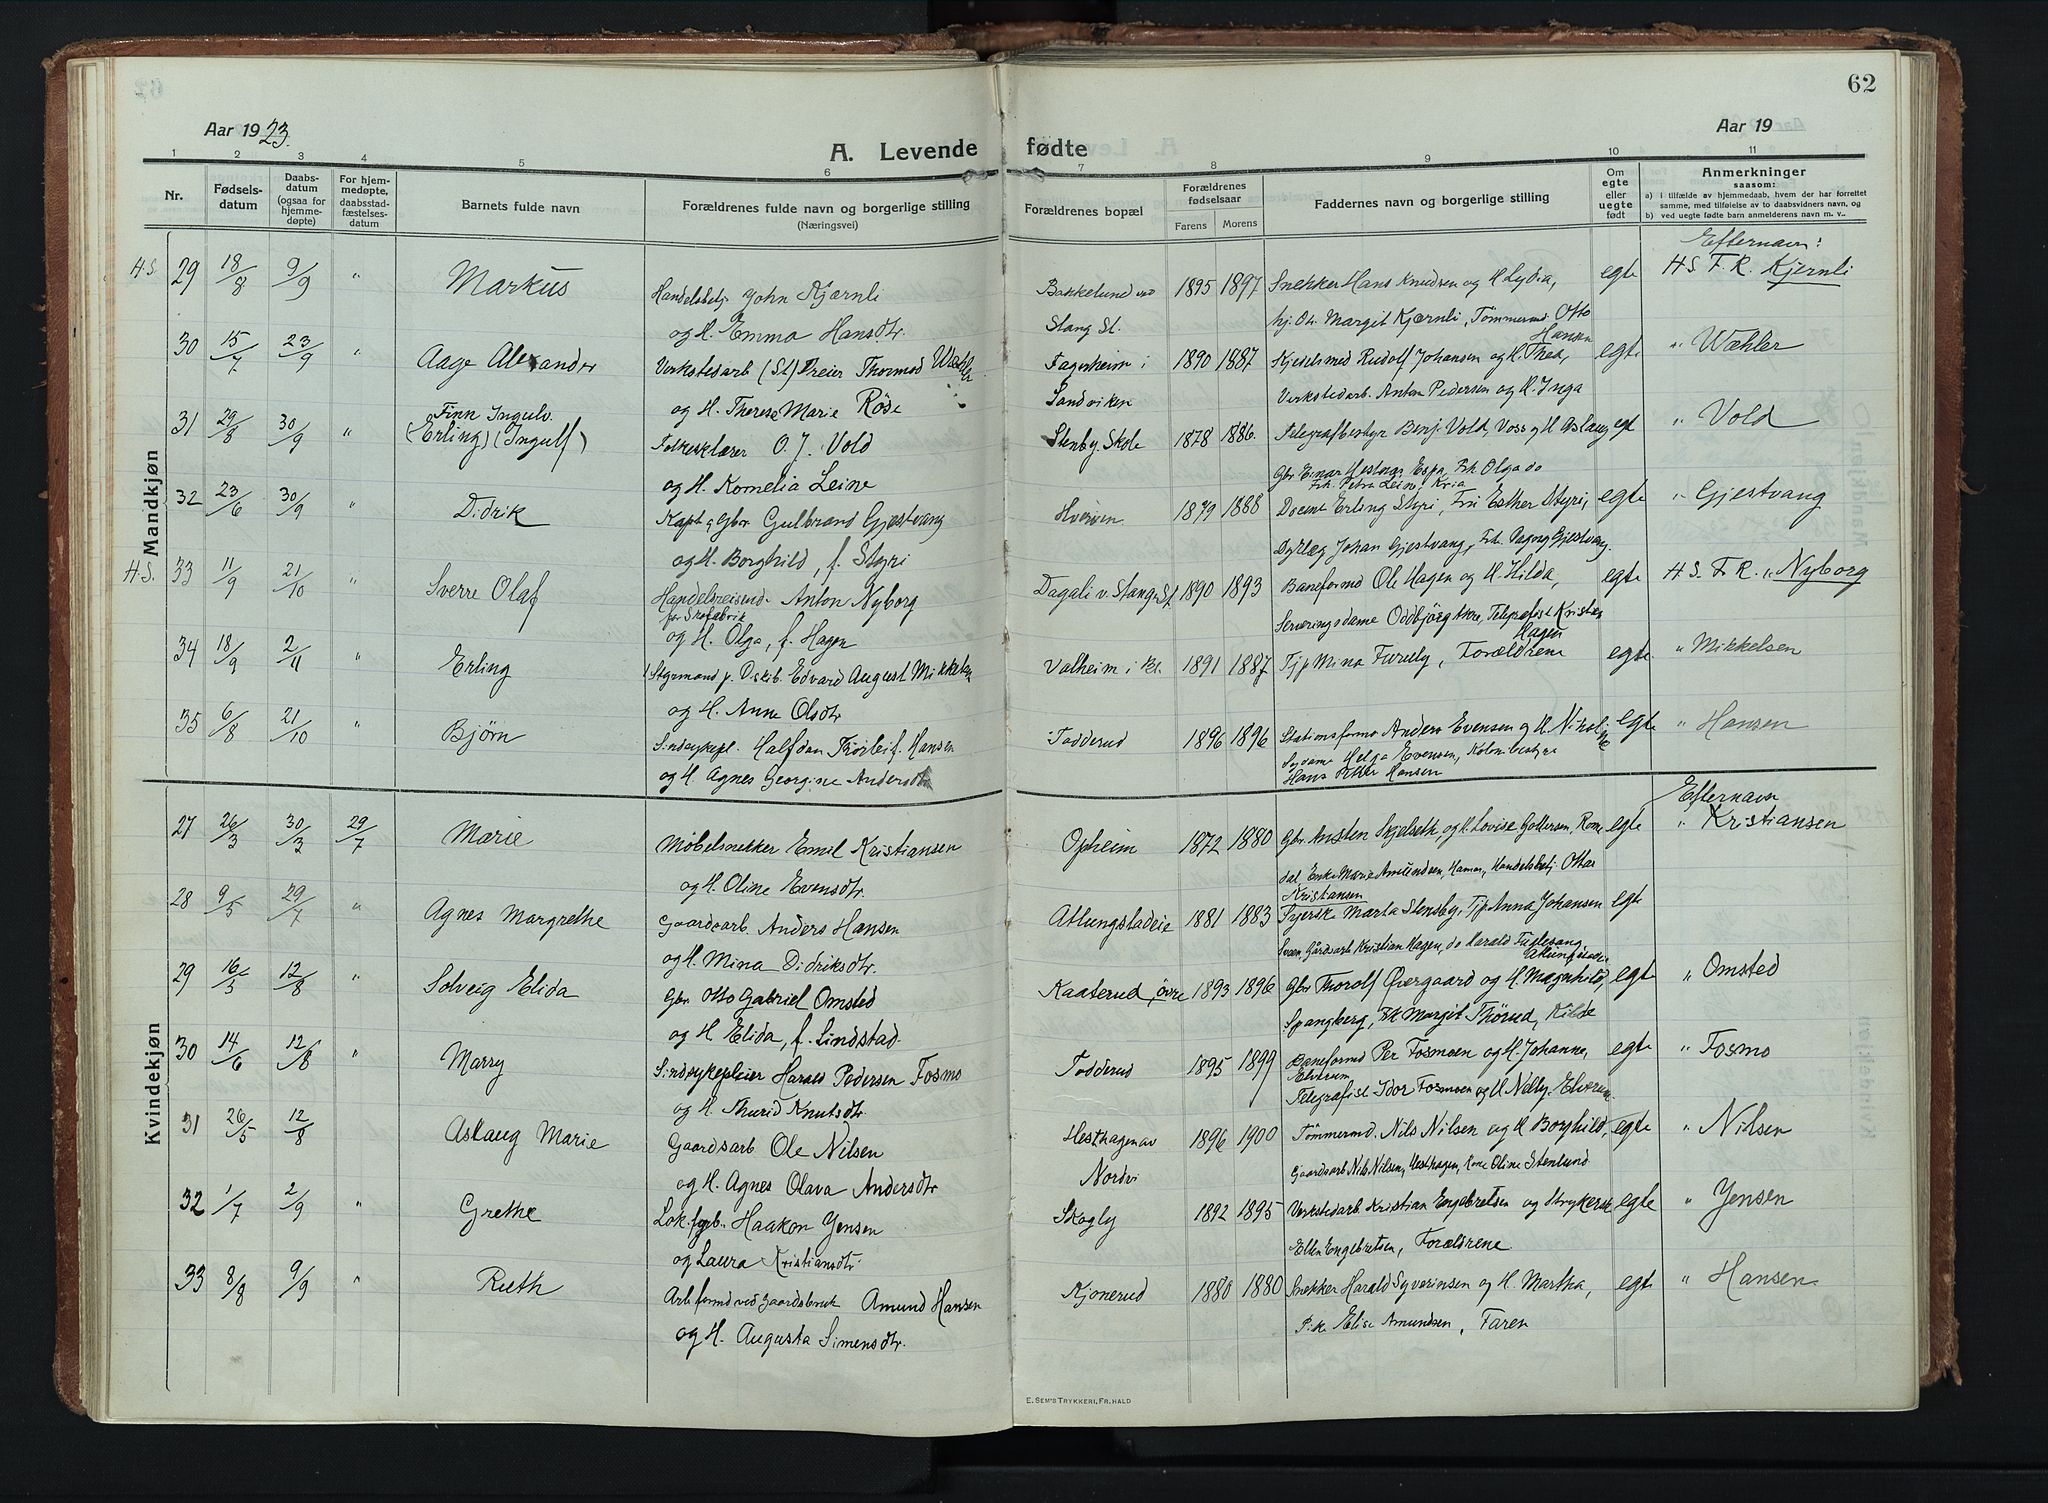 62
Aar 1923.
Aar 19
A. Levende fødte
1 2 3 4 5 6 7 8 9 10 11
Nr.
Fødsels-datum
Daabs-datum (ogsaa for hjemme-døpte)
For hjem-medøpte, daabsstad-fæstelses-datum
Barnets fulde navn
Forældrenes fulde navn og borgerlige stilling
(Næringsvei)
Forældrenes bopæl
Forældrenes fødselsaar
Farens Morens
Faddernes navn og borgerlige stilling
Om egte eller uegte født
Anmerkninger
saasom:
a) i tilfælde av hjemmedaab, hvem der har forrettet samme, med tilføielse av to daabsvidners navn, og
b) ved uegte fødte barn anmelderens navn m. v..
Mandkjøn
Efternavn:
H.S. 29 18/8 9/9 " Markus Handelsbetj. John Kjærnli Bakkelund ved 1895 1897 Snekker Hans Knudsen og H. Lydia, egte H.S. F.R. Kjernli
og H. Emma Hansdtr. Stang St. hj. Dtr. Margit Kjærnli, Tömmermd. Otto Hansen
30 15/7 23/9 " Aage Alexander Verkstedarb (St) Preier Thormod Wæhler Fagerheim i 1890 1887 Kjedelsmed Rudolf Johansen og H. Thea, egte " Wæhler
og H. Therese Marie Röse Sandviken Verkstedarb. Anton Pedersen og H. Inga
31 29/8 30/9 " Finn Ingulv. (Erling) (Ingulf) Folkesklærer O. J. Vold Stenby Skole 1878 1886. Telegrafbestyr Benj. Vold, Voss og H. Aslaug egt " Vold
og H. Kornelia Leine Gbr. Einar Hestnær, Espa, Frk. Olga do
Frk. Petra Leine, Kria
32 23/6 30/9 " Didrik Kapt & Gbr. Gulbrand Gjestvang Hverven 1879 1888 Docent Erling Styri, Fru Esther Styri, egte " Gjestvang
og H. Borghild, f. Styri Dyrlæg Johan Gjestvang, Frk. Dagny Gjestvang.
H.S. 33 11/9 21/10 " Sverre Olaf Handelsreisend. Anton Nyborg Dagali v. Stang St. 1890 1893 Baneformd Ole Hagen og H. Hilda, egte H.S. F.R. " Nyborg
for Skofabrik
og H. Olga, f. Hagen Serveringsdame Oddbjörg Akre, Telegrafist Kristen Hagen
34 18/9 2/11 " Erling Styrmand p. D.skib. Edvard August Mikkelsen Valheim i 1891 1887 Tjp Mina Furuly, Forældrene egte. " Mikkelsen
og H. Anne Olsdtr
35 6/8 21/10 " Bjørn Sindsykepl. Halfdan Thorleif Hansen Todderud 1896 1896 Stationsformd Anders Evensen og H. Nikoline egte " Hansen
og H. Agnes Georgine Andersdtr Sydame Helga Evensen, Kolonibestyr
Hans Petter Hansen
Kvindekjøn
Efternavn
27 26/3 30/3 29/7 Marie Møbelsnekker Emil Kristiansen Opheim 1872 1880 Gbr. Ansten Skjelseth, og H. Lovise Gottersen, Romedal egte " Kristiansen
og H. Oline Evensdtr. Enke Marie Amundsen, Hamar, Handelsbetj Ottar
Kristiansen
28 9/5 29/7 " Agnes Margrethe Gaardsarb. Anders Hansen Atlungstadeie 1881 1883 Syerske Marta Stensby, Tjp Anna Johansen egte
og H. Mina Didriksdtr. Sveen, Gårdsarb Kristian Hagen, do Harald Fuglesang
29 16/5 12/8 " Solveig Elida Gbr. Otto Gabriel Omsted Kaaterud, øvre 1893 1896 Gbr Thorolf Øvergaard og H. Magnhild, egte " Omsted
og H Elida, f. Lindstad. Spangberg, Frk Margit Thörud, Kilde
30 14/6 12/8 " Marry Sindsykepleier Harald Pedersen Fosmo Todderud 1895 1899 Baneformd Per Fosmoen og H. Johanne, egte " Fosmo
Elverum
og H. Thurid Knutsdtr. Telegrafist Idor Fosmoen og H Nelly, Elverum.
31 26/5 12/8 " Aslaug Marie Gaardsarb Ole Nilsen Hesthagen av 1896 1900 Tömmermd. Nils Nilsen og H Borghild, egte " Nilsen
og H. Agnes Olava Andersdtr Nordvi Gaardsarb Nils Nilsen, Hesthagen, Kone Oline Stenlund
32 1/7 2/9 " Grethe Lok.fyrb. Haakon Jensen Skogly 1892 1895 Verkstedarb. Kristian Engebretsen og Strykersk egte " Jensen
og Laura Kristiansdtr. Ellen Engebretsen, Forældrene
33 8/8 9/9 " Ruth Arb.formd ved Gaardsbruk Amund Hansen Kjonerud 1880 1880 Snekker Harald Syverinsen og H. Martha, egte " Hansen
og H. Augusta Simensdtr. Pike Elise Amundsen, Faren
E. SEM'S TRYKKERI, FR. HALD